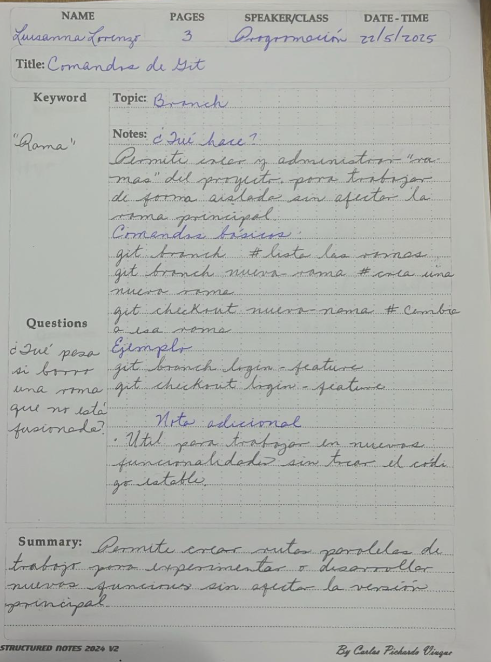 NAME PAGES SPEAKER/CLASS DATE - TIME
Luisanna Lorenzo 3 Programación 22/5/2025
Title: Comandos de Git
Keyword
"Rama"
Topic: Branch
Notes: ¿Qué hace?
Permite crear y administrar "ra-
mas" del proyecto, para trabajar
de forma aislada sin afectar la
rama principal.
Comandos básicos:
git branch # lista las ramas
git branch nueva-rama # crea una
nueva rama
git checkout nueva-rama # Cambia
a esa rama
Ejemplo
git branch login-feature
git checkout login-feature
Nota adicional
· Util para trabajar en nuevas
funcionalidades sin tocar el códi
go estable.
Questions
¿Qué pasa
si borro
una rama
que no está
fusionada?
Summary: Permite crear rutas paralelas de
trabajo para experimentar o desarrollar
nuevas funciones sin afectar la versión
principal.
STRUCTURED NOTES 2024 V2 By Carlos Pichardo Vinque